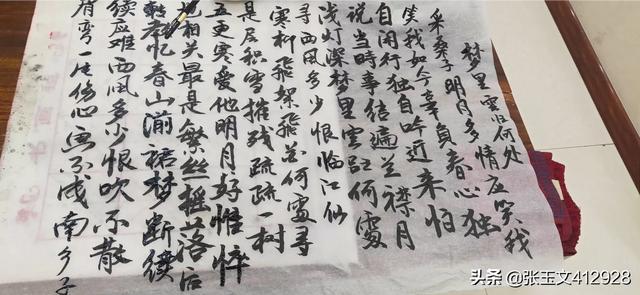 梦里雲归何处
采桑子明月多情应笑我
笑我如今辜负春心独
自闲行独自吟近来怕
说当时事结遍兰襟月
浅灯深梦里雲归何處
寻西风多少恨临江仙
寒柳飛絮飛花何處寻
是积雪摧残疏疏一树
五更寒爱他明月好憔悴
也相关最是繁丝摇落后
转教忆春山湔裙梦断续
续应难西风多少恨吹不散
眉弯一生伤心画不成南乡子
头条 @张玉文412928